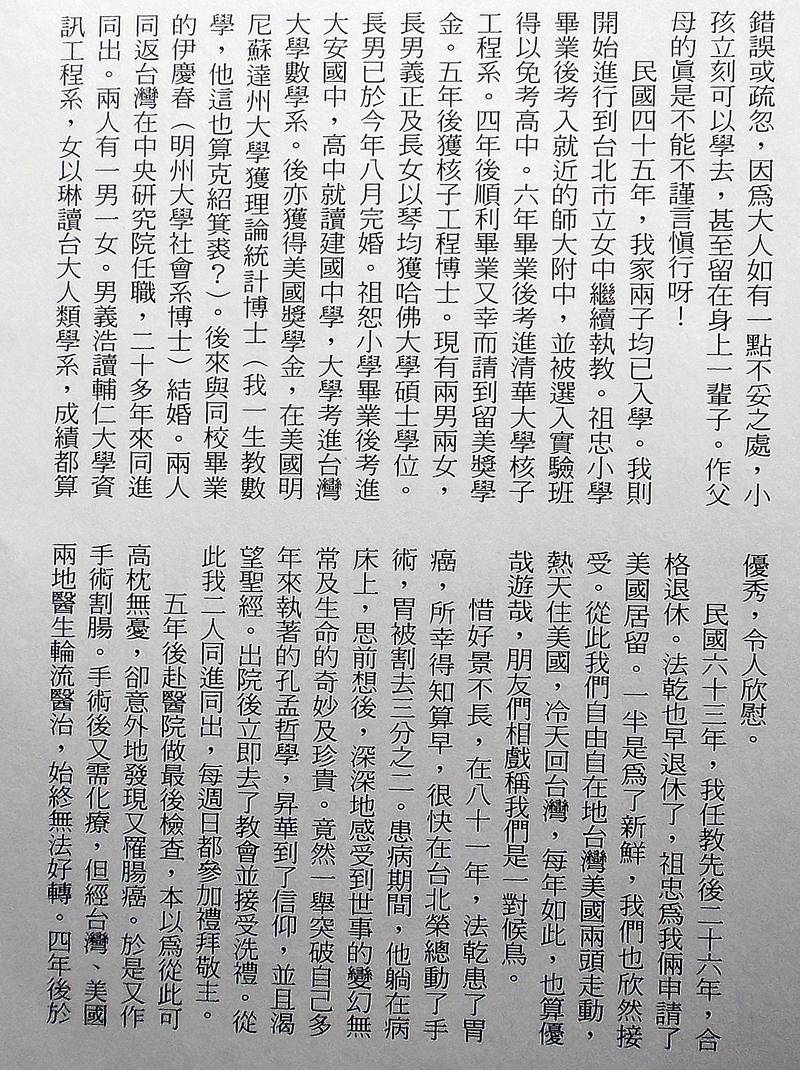 錯誤或疏忽，因爲大人如有一點不妥之處，小
孩立刻可以學去，甚至留在身上一輩子。作父
母的眞是不能不謹言愼行呀！
民國四十五年，我家兩子均已入學。我則
開始進行到台北市立女中繼續執教。祖忠小學
畢業後考入就近的師大附中，並被選入實驗班
得以免考高中。六年畢業後考進清華大學核子
工程系。四年後順利畢業又幸而請到留美獎學
金。五年後獲核子工程博士。現有兩男兩女，
長男義正及長女以琴均獲哈佛大學碩士學位。
長男已於今年八月完婚。祖恕小學畢業後考進
大安國中，高中就讀建國中學，大學考進台灣
大學數學系。後亦獲得美國獎學金，在美國明
尼蘇達州大學獲理論統計博士（我一生教數
學，他這也算克紹箕裘？）。後來與同校畢業
的伊慶春（明州大學社會系博士）結婚。兩人
同返台灣在中央研究院任職，二十多年來同進
同出。兩人有一男一女。男義浩讀輔仁大學資
訊工程系，女以琳讀台大人類學系，成績都算
優秀，令人欣慰。
民國六十三年，我任教先後二十六年，合
格退休。法乾也早退休了，祖忠爲我倆申請了
美國居留。一半是爲了新鮮，我們也欣然接
受。從此我們自由自在地台灣美國兩頭走動，
熱天住美國，冷天回台灣，每年如此，也算優
哉遊哉，朋友們相戲稱我們是一對候鳥。
惜好景不長，在八十一年，法乾患了胃
癌，所幸得知算早，很快在台北榮總動了手
術，胃被割去三分之二。患病期間，他躺在病
床上，思前想後，深深地感受到世事的變幻無
常及生命的奇妙及珍貴。竟然一舉突破自己多
年來執著的孔孟哲學，昇華到了信仰，並且渴
望聖經。出院後立即去了教會並接受洗禮。從
此我二人同進同出，每週日都參加禮拜敬主。
五年後赴醫院做最後檢查，本以爲從此可
高枕無憂，卻意外地發現又罹腸癌。於是又作
手術割腸。手術後又需化療，但經台灣、美國
兩地醫生輪流醫治，始終無法好轉。四年後於